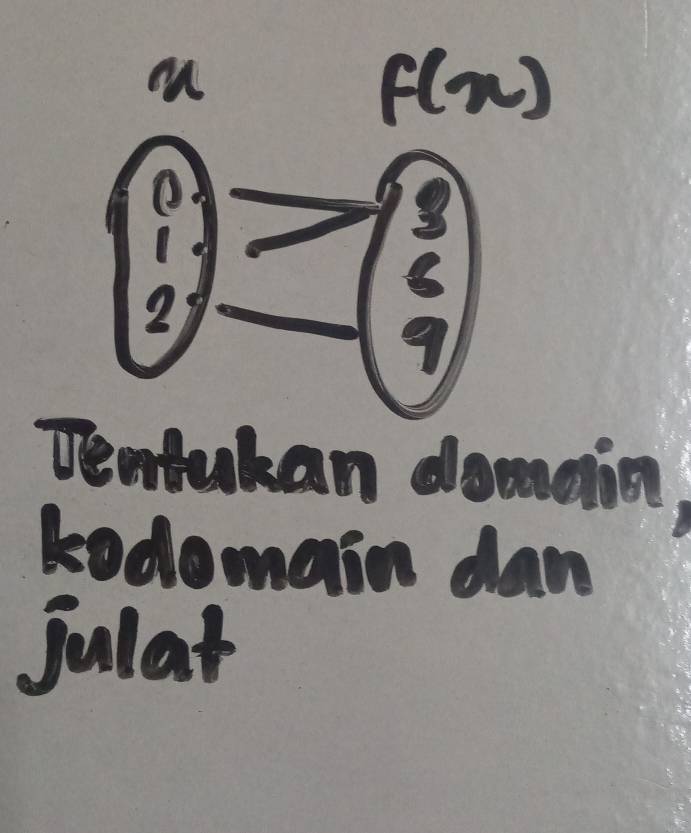 x f(x)
0. 3
1. 6
2. 9
Tentukan domain,
kodomain dan
julat